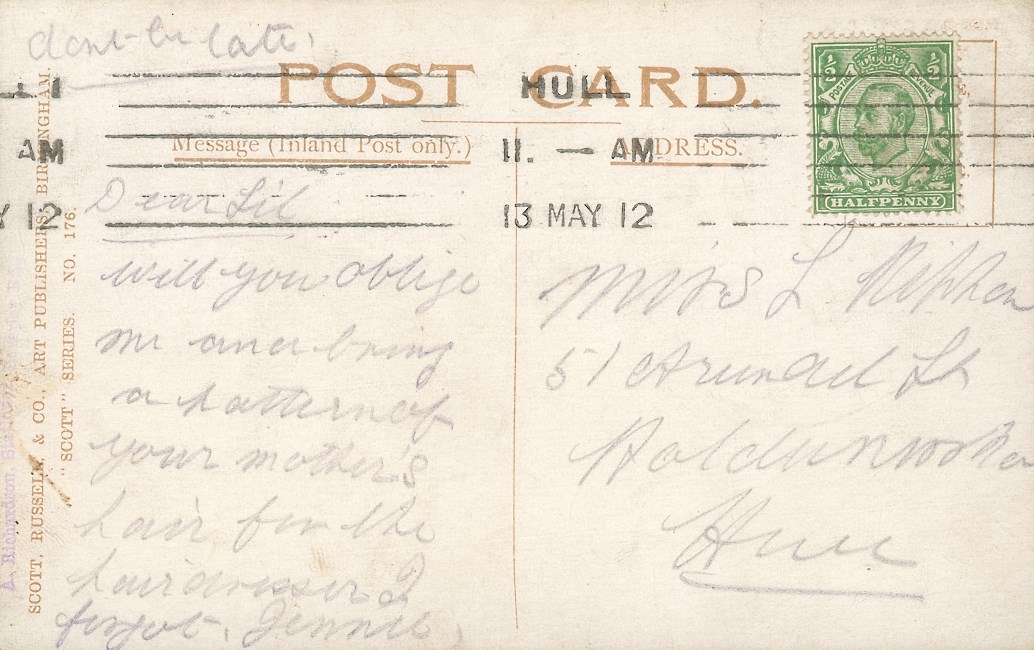 dont be late,
POST CARD.
HULL
11. — AM
13 MAY 12
AM
Y 12
½ ½
POSTAGE REVENUE
HALFPENNY
Message (Inland Post only.)
ADDRESS.
Dear Lil
will you oblige
me and bring
a pattern of
your mother's
hair for the
hairdresser I
forgot, Jennie,
Miss L
51 Arundel St
Holderness Rd
Hull
SCOTT, RUSSELL, & CO., ART PUBLISHERS, BIRMINGHAM.
"SCOTT" SERIES. NO. 176.
A. Richardson,